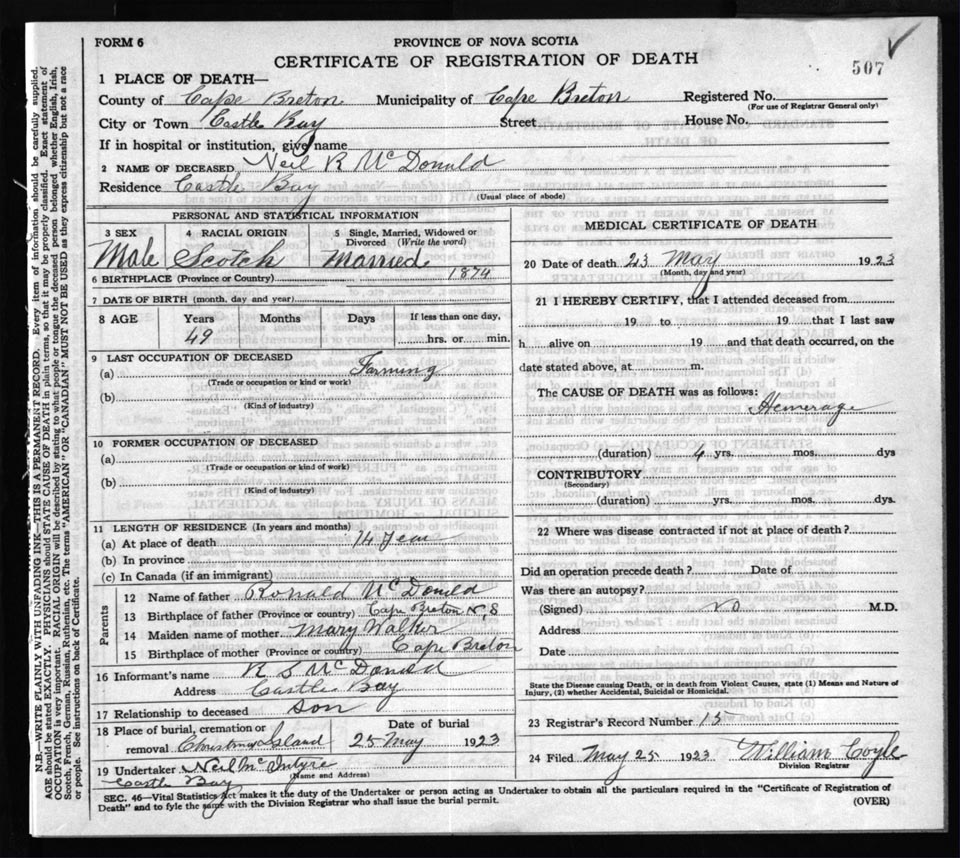 FORM 6
PROVINCE OF NOVA SCOTIA
CERTIFICATE OF REGISTRATION OF DEATH
507
1 PLACE OF DEATH—
County of Cape Breton Municipality of Cape Breton Registered No.
(For use of Registrar General only)
City or Town Castle Bay Street House No.
If in hospital or institution, give name
2 NAME OF DECEASED Neil R McDonald
Residence Castle Bay
(Usual place of abode)
PERSONAL AND STATISTICAL INFORMATION
3 SEX 4 RACIAL ORIGIN 5 Single, Married, Widowed or Divorced (Write the word)
Male Scotch Married
6 BIRTHPLACE (Province or Country) 1874
7 DATE OF BIRTH (month, day and year)
8 AGE Years Months Days If less than one day,
49 hrs. or min.
9 LAST OCCUPATION OF DECEASED
(a) Farming
(Trade or occupation or kind or work)
(b)
(Kind of industry)
10 FORMER OCCUPATION OF DECEASED
(a)
(Trade or occupation or kind or work)
(b)
(Kind of industry)
11 LENGTH OF RESIDENCE (In years and months)
(a) At place of death 14 Year
(b) In province
(c) In Canada (if an immigrant)
Parents
12 Name of father Ronald McDonald
13 Birthplace of father (Province or country) Cape Breton N.S
14 Maiden name of mother Mary Walker
15 Birthplace of mother (Province or country) Cape Breton
16 Informant's name R S McDonald
Address Castle Bay
17 Relationship to deceased Son
18 Place of burial, cremation or removal Christmas Island
Date of burial
25 May 1923
19 Undertaker Neil McIntyre
Castle Bay (Name and Address)
MEDICAL CERTIFICATE OF DEATH
20 Date of death 23 May 1923
(Month, day and year)
21 I HEREBY CERTIFY, that I attended deceased from
19 to 19 that I last saw
h alive on 19 and that death occurred, on the
date stated above, at m.
The CAUSE OF DEATH was as follows:
Hemerage
(duration) 4 yrs. mos. dys
CONTRIBUTORY
(Secondary)
(duration) yrs. mos. dys.
22 Where was disease contracted if not at place of death?
Did an operation precede death? Date of
Was there an autopsy?
(Signed) no M.D.
Address
Date
State the Disease causing Death, or in death from Violent Causes, state (1) Means and Nature of
Injury, (2) whether Accidental, Suicidal or Homicidal.
23 Registrar's Record Number 15
24 Filed May 25 1923 William Coyle
Division Registrar
SEC. 46—Vital Statistics Act makes it the duty of the Undertaker or person acting as Undertaker to obtain all the particulars required in the "Certificate of Registration of
Death" and to fyle the same with the Division Registrar who shall issue the burial permit.
(OVER)
N.B.—WRITE PLAINLY WITH UNFADING INK—THIS IS A PERMANENT RECORD. Every item of information should be carefully supplied.
AGE should be stated EXACTLY. PHYSICIANS should STATE CAUSE OF DEATH in plain terms, so that it may be properly classified. Exact statement of
OCCUPATION is very important. RACIAL ORIGIN will be described by stating to what people or tongue the deceased person belonged whether English, Irish,
Scotch, French, German, Russian, Ruthenian, etc. The terms "AMERICAN" OR "CANADIAN" MUST NOT BE USED as they express citizenship but not a race
or people. See instructions on back of Certificate.